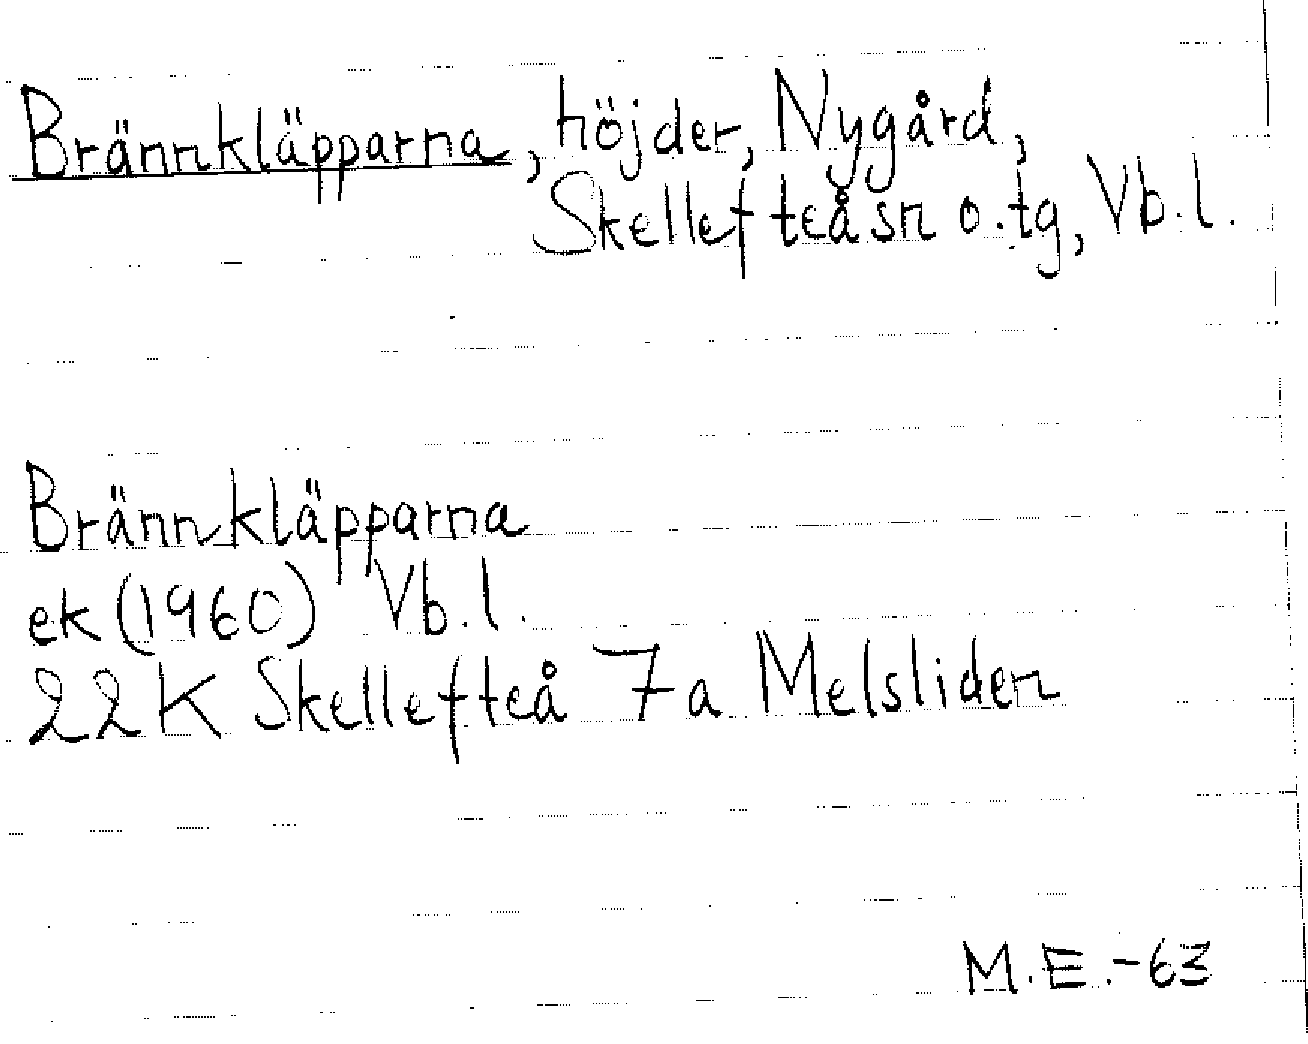 Brännkläpparna, höjder, Nygård,
Skellefteå sn o. tg, Vb. l.
Brännkläpparna
ek (1960) Vb. l.
22 K Skellefteå 7a Melsliden
M.E.-63